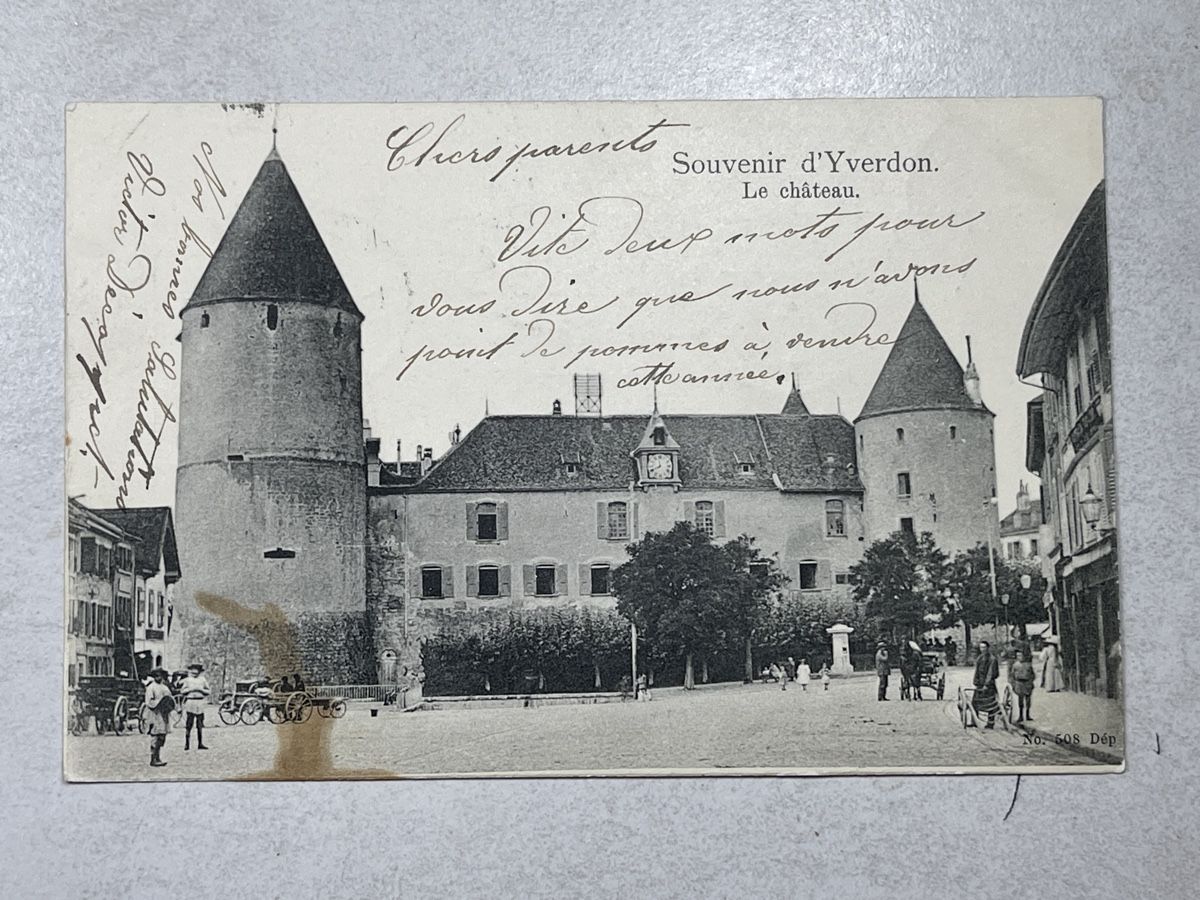 Chers parents
Souvenir d'Yverdon.
Le château.
Vite deux mots pour
vous dire que nous n'avons
point de pommes à vendre
cette année.
Nos bonnes Salutations
Victor
No. 508 Dép